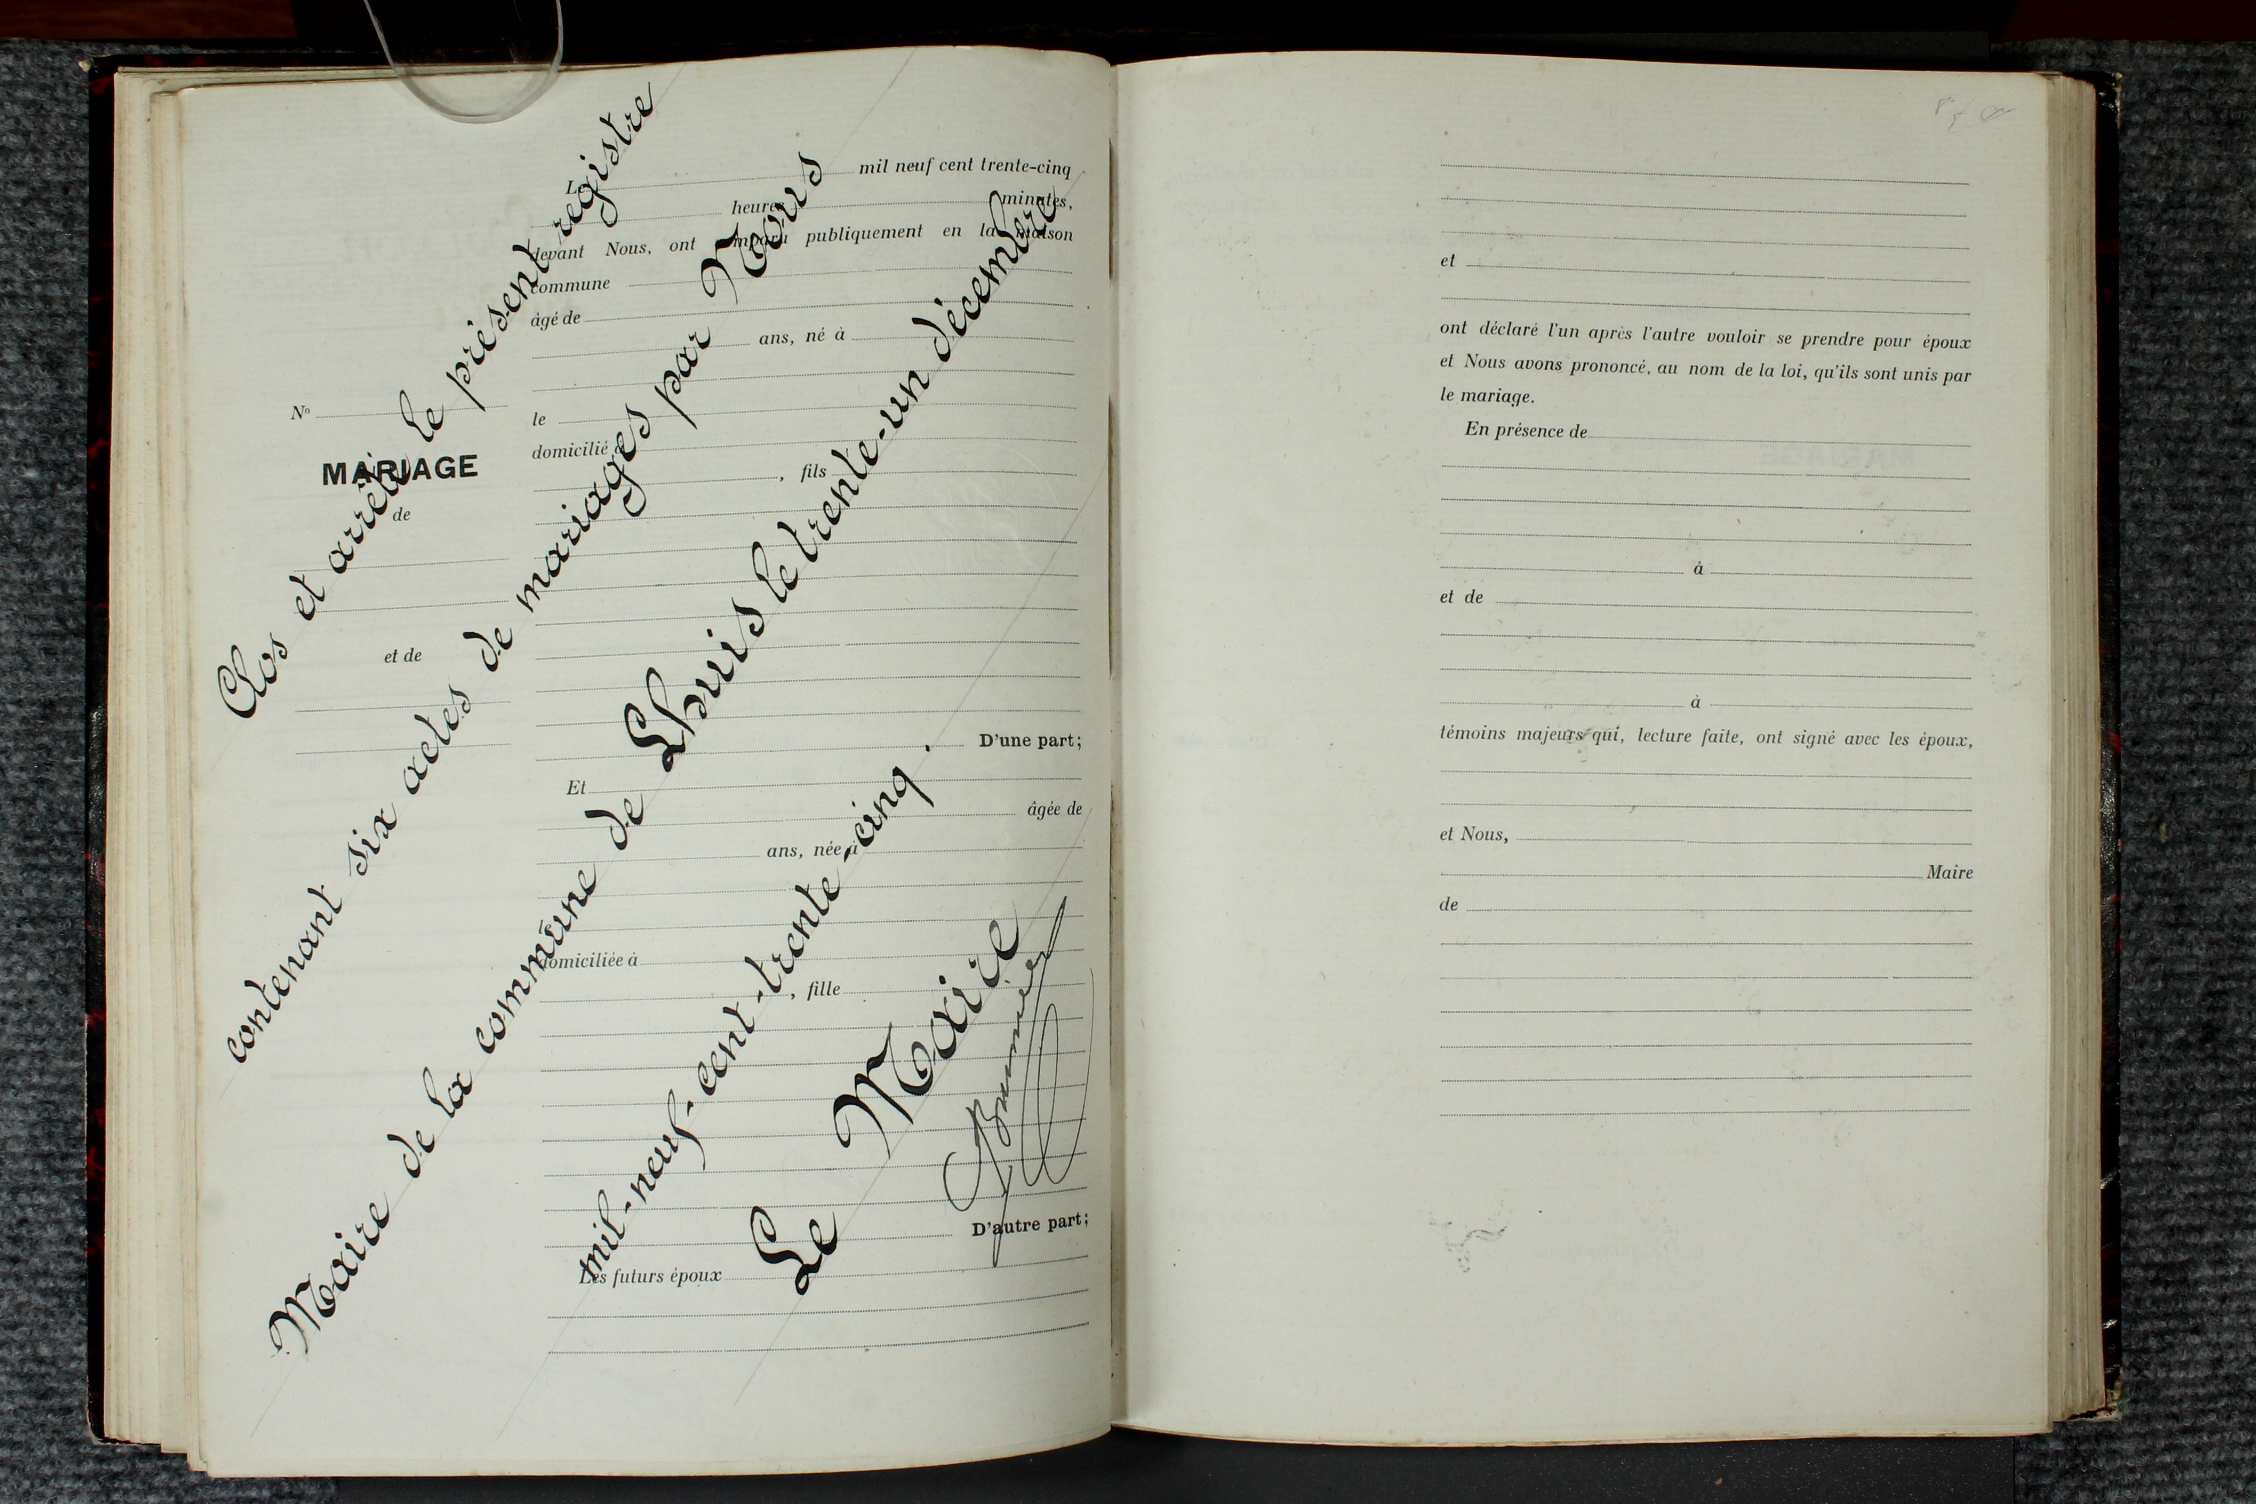 Clos et arrêté le présent registre
contenant six actes de mariages par Nous
Maire de la commune de Lhuis le trente-un décembre
mil-neuf-cent-trente-cinq.
Le Maire
No
MARIAGE
de
et de
Le mil neuf cent trente-cinq
heures minutes,
devant Nous, ont comparu publiquement en la maison
commune
âgé de
ans, né à
le
domicilié à
, fils
D'une part;
Et
âgée de
ans, née à
domiciliée à
, fille
D'autre part;
Les futurs époux
et
ont déclaré l'un après l'autre vouloir se prendre pour époux
et Nous avons prononcé, au nom de la loi, qu'ils sont unis par
le mariage.
En présence de
à
et de
à
témoins majeurs qui, lecture faite, ont signé avec les époux,
et Nous,
Maire
de